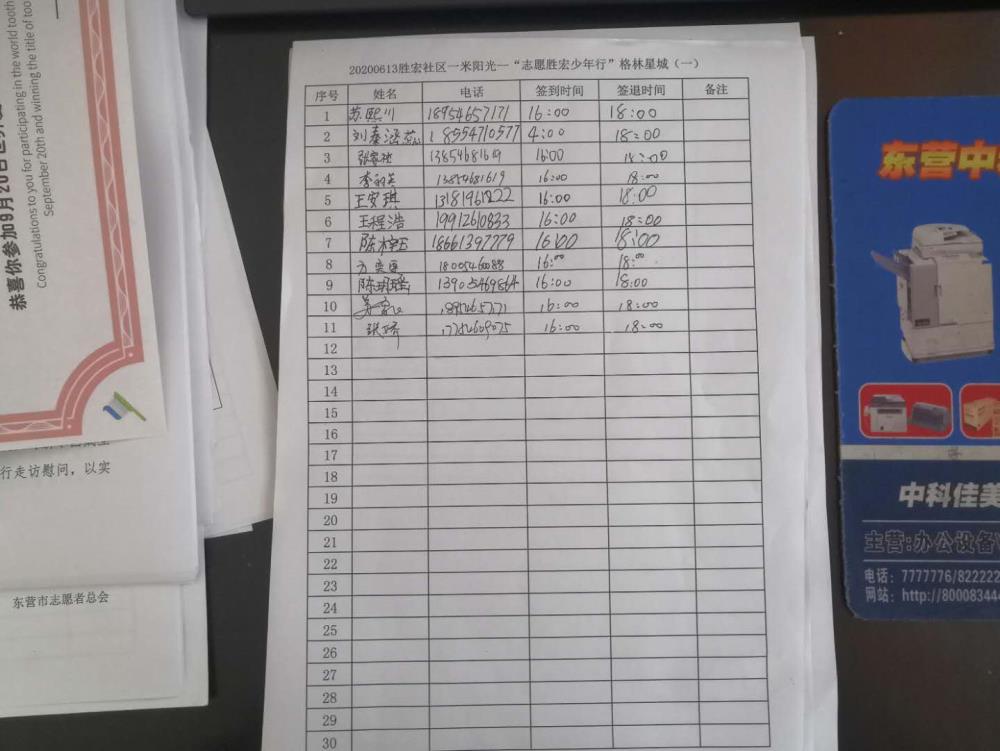 20200613胜宏社区一米阳光—“志愿胜宏少年行”格林星城（一）
序号 姓名 电话 签到时间 签退时间 备注
1 苏熙川 18954657171 16:00 18:00
2 刘泰涵 18554710577 4:00 18:00
3 13854681619 16:00 18:00
4 13854681619 16:00 18:00
5 王安琪 16:00 18:00
6 王程浩 19912610833 16:00 18:00
7 18661397779 16:00 18:00
8 18005460088 16:00 18:00
9 13905469864 16:00 18:00
10 16:00 18:00
11 16:00 18:00
12
13
14
15
16
17
18
19
20
21
22
23
24
25
26
27
28
29
30
恭喜你参加9月20日
Congratulations to you for participating in the world tooth
September 20th and winning the title of too
行走访慰问，以实
东营市志愿者总会
东营中
中科佳美
主营:办公设备
电话：7777776/822222
网站：http://80008344